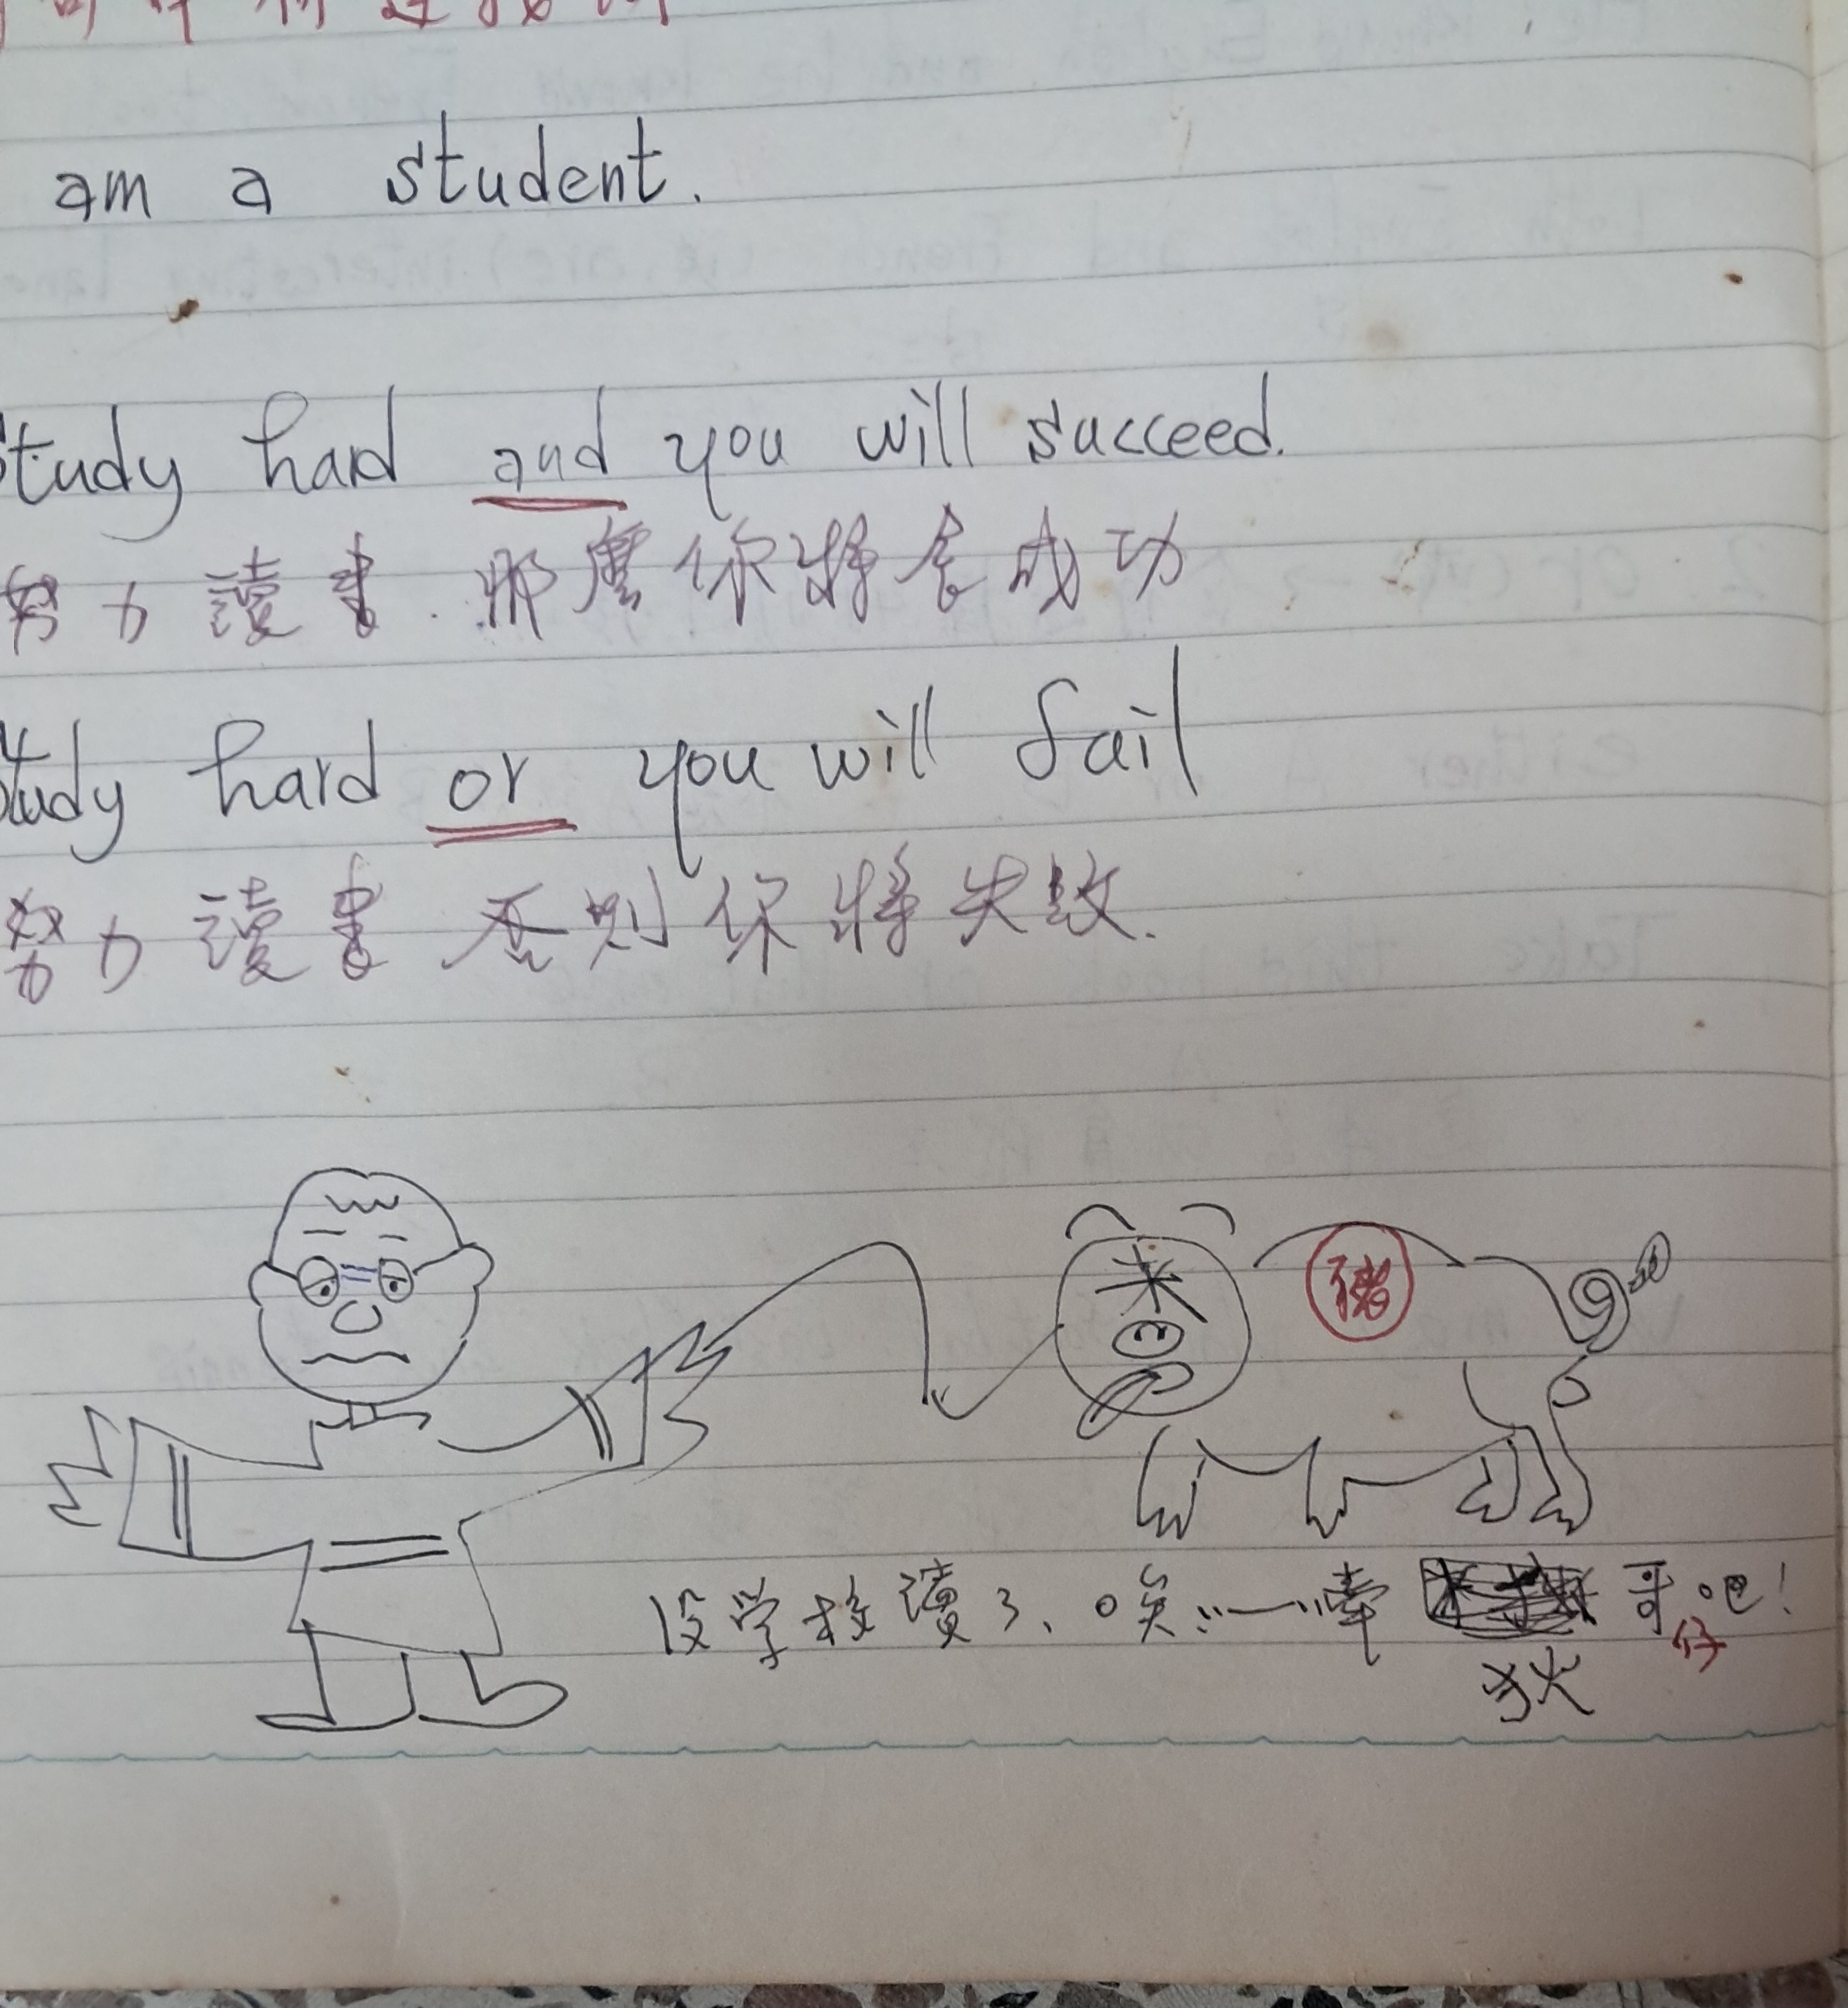 am a student.
study hard and you will succeed.
努力讀書.那麼你將會成功
study hard or you will fail
努力讀書否則你將失敗.
豬
没学校讀了、唉…一牽哥吧!
仔
狄